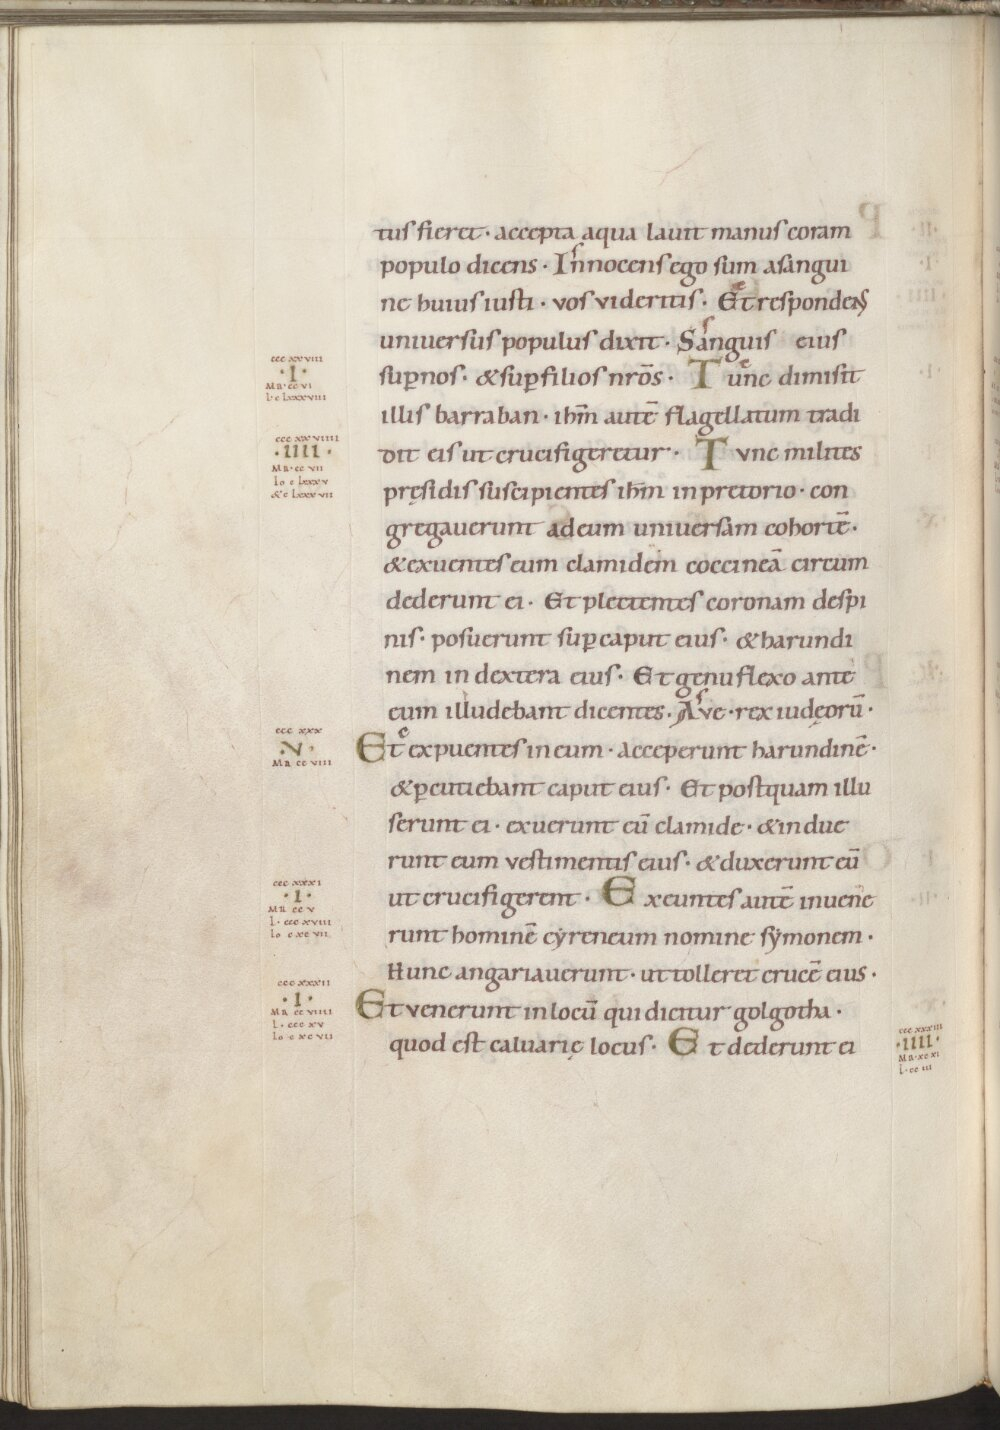 tus fieret · accepta aqua lauit manus coram
populo dicens · Innocens ego sum asangui
ne huius iusti · vos videritis · Et respondens
uniuersus populus dixit · Sanguis eius
sup nos · & sup filios nr̄os · Tunc dimisit
illis barraban · ihm̄ autē flagellatum tradi
dit eis ut crucifigeretur · Tunc milites
pręsidis suscipientes ihm̄ in pretorio · con
gregauerunt ad eum uniuersam cohortē ·
& exuentes eum clamidem coccineā circum
dederunt ei · Et plectentes coronam despi
nis · posuerunt sup caput eius · & harundi
nem in dextera eius · Et genu flexo ante
eum illudebant dicentes · Ave · rex iudęorū ·
Et expuentes in eum · acceperunt harundinē ·
& pcutiebant caput eius · Et postquam illu
serunt ei · exuerunt eū clamide · & indue
runt eum vestimentis eius · & duxerunt eū
ut crucifigerent · Exeuntes autē inuene
runt hominē cyreneum nomine symonem ·
Hunc angariauerunt · ut tolleret crucē eius ·
Et venerunt in locū qui dicitur golgotha ·
quod est caluarię locus · Et dederunt ei
ccc xxviii
· I ·
Ma · cc vi
l · c lxxxviii
ccc xxviiii
· IIII ·
Ma · cc vii
Io c lxxxv
& c lxxxvii
ccc xxx
· V ·
Ma cc viii
ccc xxxi
· I ·
l · ccc xviii
Io c xc vii
ccc xxxii
· I ·
Ma cc viiii
l · ccc xv
Io c xc vii
ccc xxxiii
· IIII ·
Ma · xc xi
l · cc iii